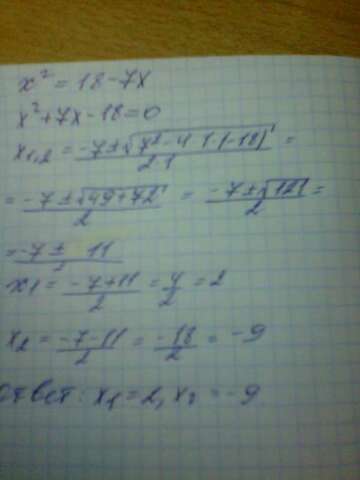 x² = 18 - 7x
x² + 7x - 18 = 0
x₁,₂ = (-7 ± √(7² - 4 · 1 · (-18))) / (2 · 1) =
= (-7 ± √(49 + 72)) / 2 = (-7 ± √121) / 2 =
= (-7 ± 11) / 2
x₁ = (-7 + 11) / 2 = 4/2 = 2
x₂ = (-7 - 11) / 2 = -18/2 = -9
Ответ: x₁ = 2, x₂ = -9